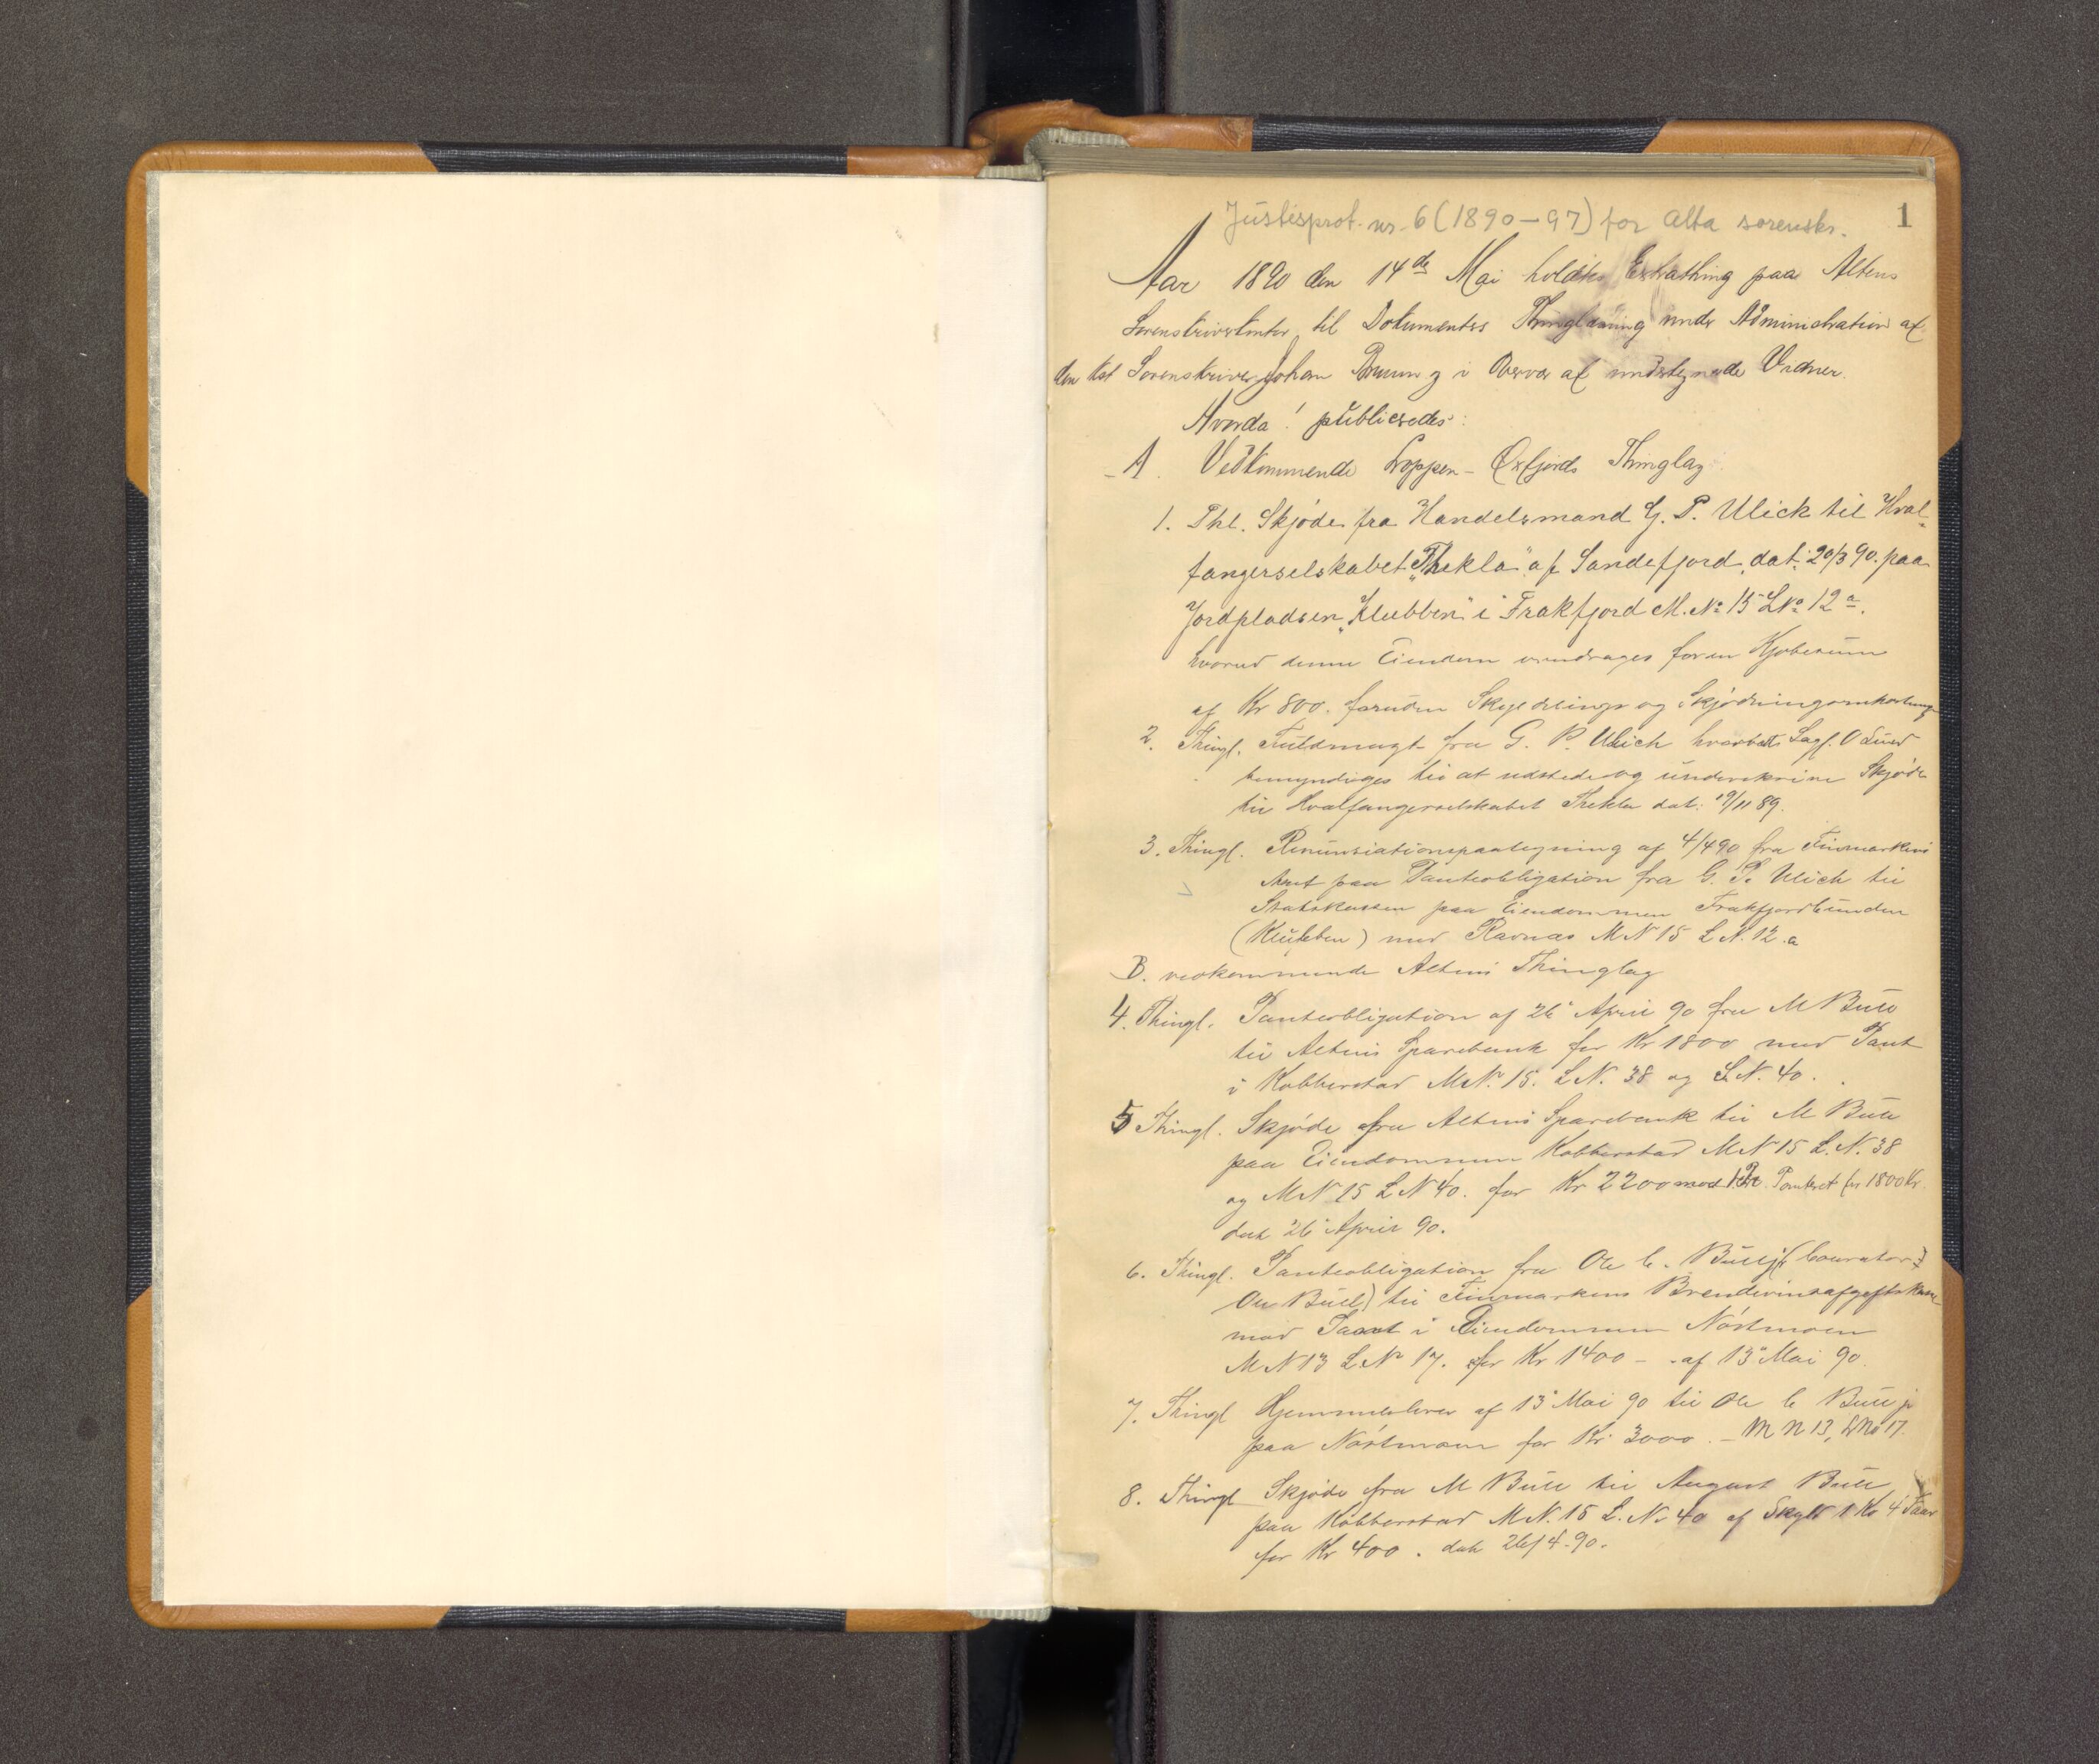 Justisprot. nr. 6 (1890–97) for Alta sorenskr. 1
Aar 1890 den 14de Mai holdtes Extrathing paa Altens
Sorenskriverkontor til Dokumenters Thinglæsning under Administration af
den kst Sorenskriver Johan i Overvær af undertegnede Vidner.
Hvorda! publiceredes:
A. Vedkommende Loppen-Øxfjords Thinglag
1. Thl. Skjøde fra Handelsmand G. P. Ulick til Hval-
fangerselskabet "Thekla" af Sandefjord, dat. 20/3 90. paa
Jordpladsen "Klubben" i Frakfjord M. No 15 L No 12 a.
hvorved denne Eiendom overdrages for en Kjøbesum
af Kr 800. foruden Skyldelings og Skjødningsomkostninger
2. Thingl. Fuldmagt fra G. P. Ulich hvorved Sagf. O Lund
bemyndiges til at udstede og underskrive Skjøde
til Hvalfangerselskabet Thekla dat: 19/11 89.
3. Thingl. Renunsiationspaategning af 4/4 90 fra Finmarkens
Amt paa Panteobligation fra G. P. Ulich til
Statskassen paa Eiendommen Frakfjordbunden
(Klubben) med Ravnæs M N 15 L N. 12.a
B. vedkommende Altens Thinglag
4. Thingl. Panteobligation af 26 April 90 fra M Bull
til Altens Sparebank for Kr 1800 med Pant
i Kobberstad M N. 15. L N. 38 og L N. 40.
5 Thingl. Skjøde fra Altens Sparebank til M Bull
paa Eiendommen Kobberstad M N 15 L. N. 38
og M N 15 L N 40. for Kr 2200 mod 1 Pr. Panteret for 1800 Kr
dat 26 April 90.
6. Thingl. Panteobligation fra Ole C. Bull jr (Courator:
Ole Bull) til Finmarkens Brændevinsafgiftskasse
mod Pant i Eiendommen Nøstmoen
M N 13 L No 17. for Kr 1400 – af 13 Mai 90.
7. Thingl Hjemmelsbrev af 13 Mai 90 til Ole C Bull jr
paa Nøstmoen for Kr 3000. – M N 13, L No 17.
8. Thingl Skjøde fra M Bull til August Bull
paa Kobberstad M N. 15 L. No 40 af Skyld 1 Kr 4
for Kr 400. dat 26/4-90.